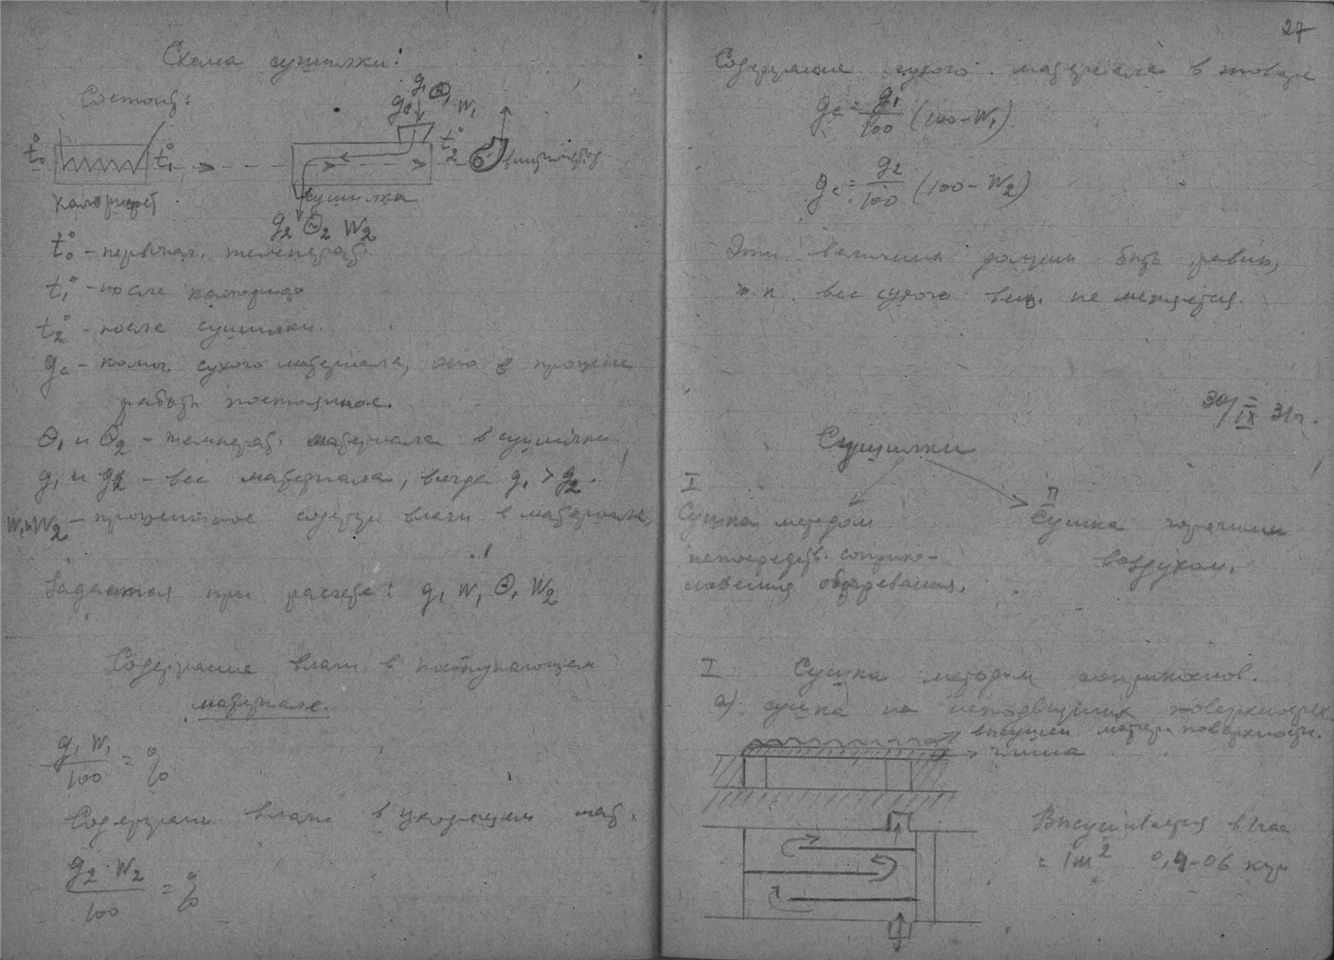 Схема сушилки:
Состоит:
g₁ Θ₁ W₁
gc
t₀° t₁° t₂° вентилятор
калорифер
сушилка
g₂ Θ₂ W₂
t₀° - первонач. температ.
t₁° - после калорифера
t₂° - после сушилки.
gc - колич. сухого материала, оно в процессе
работы постоянное.
Θ₁ и Θ₂ - температ. материала в сушилке
g₁ и g₂ - вес материала, всегда g₁ > g₂.
W₁ и W₂ - процентное содерж. влаги в материале,
Задается при расчете: g₁ W₁ Θ₁ W₂
Содержание влаги в поступающем
материале.
g₁ W₁ / 100 = %
Содержан. влаги в уходящем мат.
g₂ · W₂ / 100 = %
27
Содержание сухого материала в товаре
gc = g₁/100 (100 - W₁)
gc = g₂/100 (100 - W₂)
Эти величины должны быть равны,
т.к. вес сухого вещ. не меняется.
30/IX 31 г.
Сушилки
I II
Сушка методом
непосредств. соприко-
сновения обогревания.
Сушка горячим
воздухом.
I Сушка методом соприкоснов.
а) сушка на неподвижных поверхностях
высушен. матер. поверхность.
глина
Высушивается в 1 час
= 1 m² 0,4-06 кгр